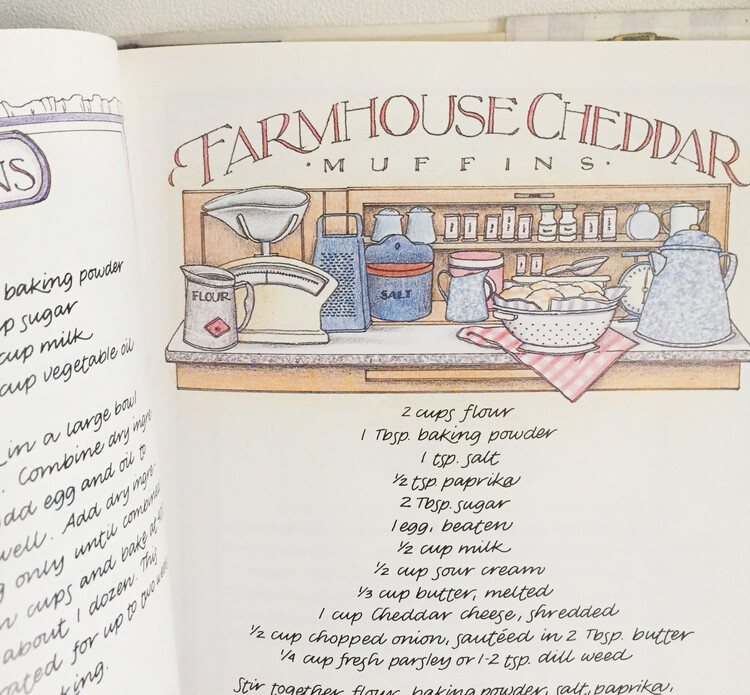 NS
baking powder
sugar
cup milk
cup vegetable oil
in a large bowl
Combine dry
egg and oil to
well. Add dry
only until
cups and bake at
about 1 dozen. This
for up to two
FARMHOUSE CHEDDAR
·MUFFINS·
FLOUR
SALT
2 cups flour
1 Tbsp. baking powder
1 tsp. salt
½ tsp. paprika
2 Tbsp. sugar
1 egg, beaten
½ cup milk
½ cup sour cream
⅓ cup butter, melted
1 cup Cheddar cheese, shredded
½ cup chopped onion, sautéed in 2 Tbsp. butter
¼ cup fresh parsley or 1-2 tsp. dill weed
Stir together flour, baking powder, salt, paprika,